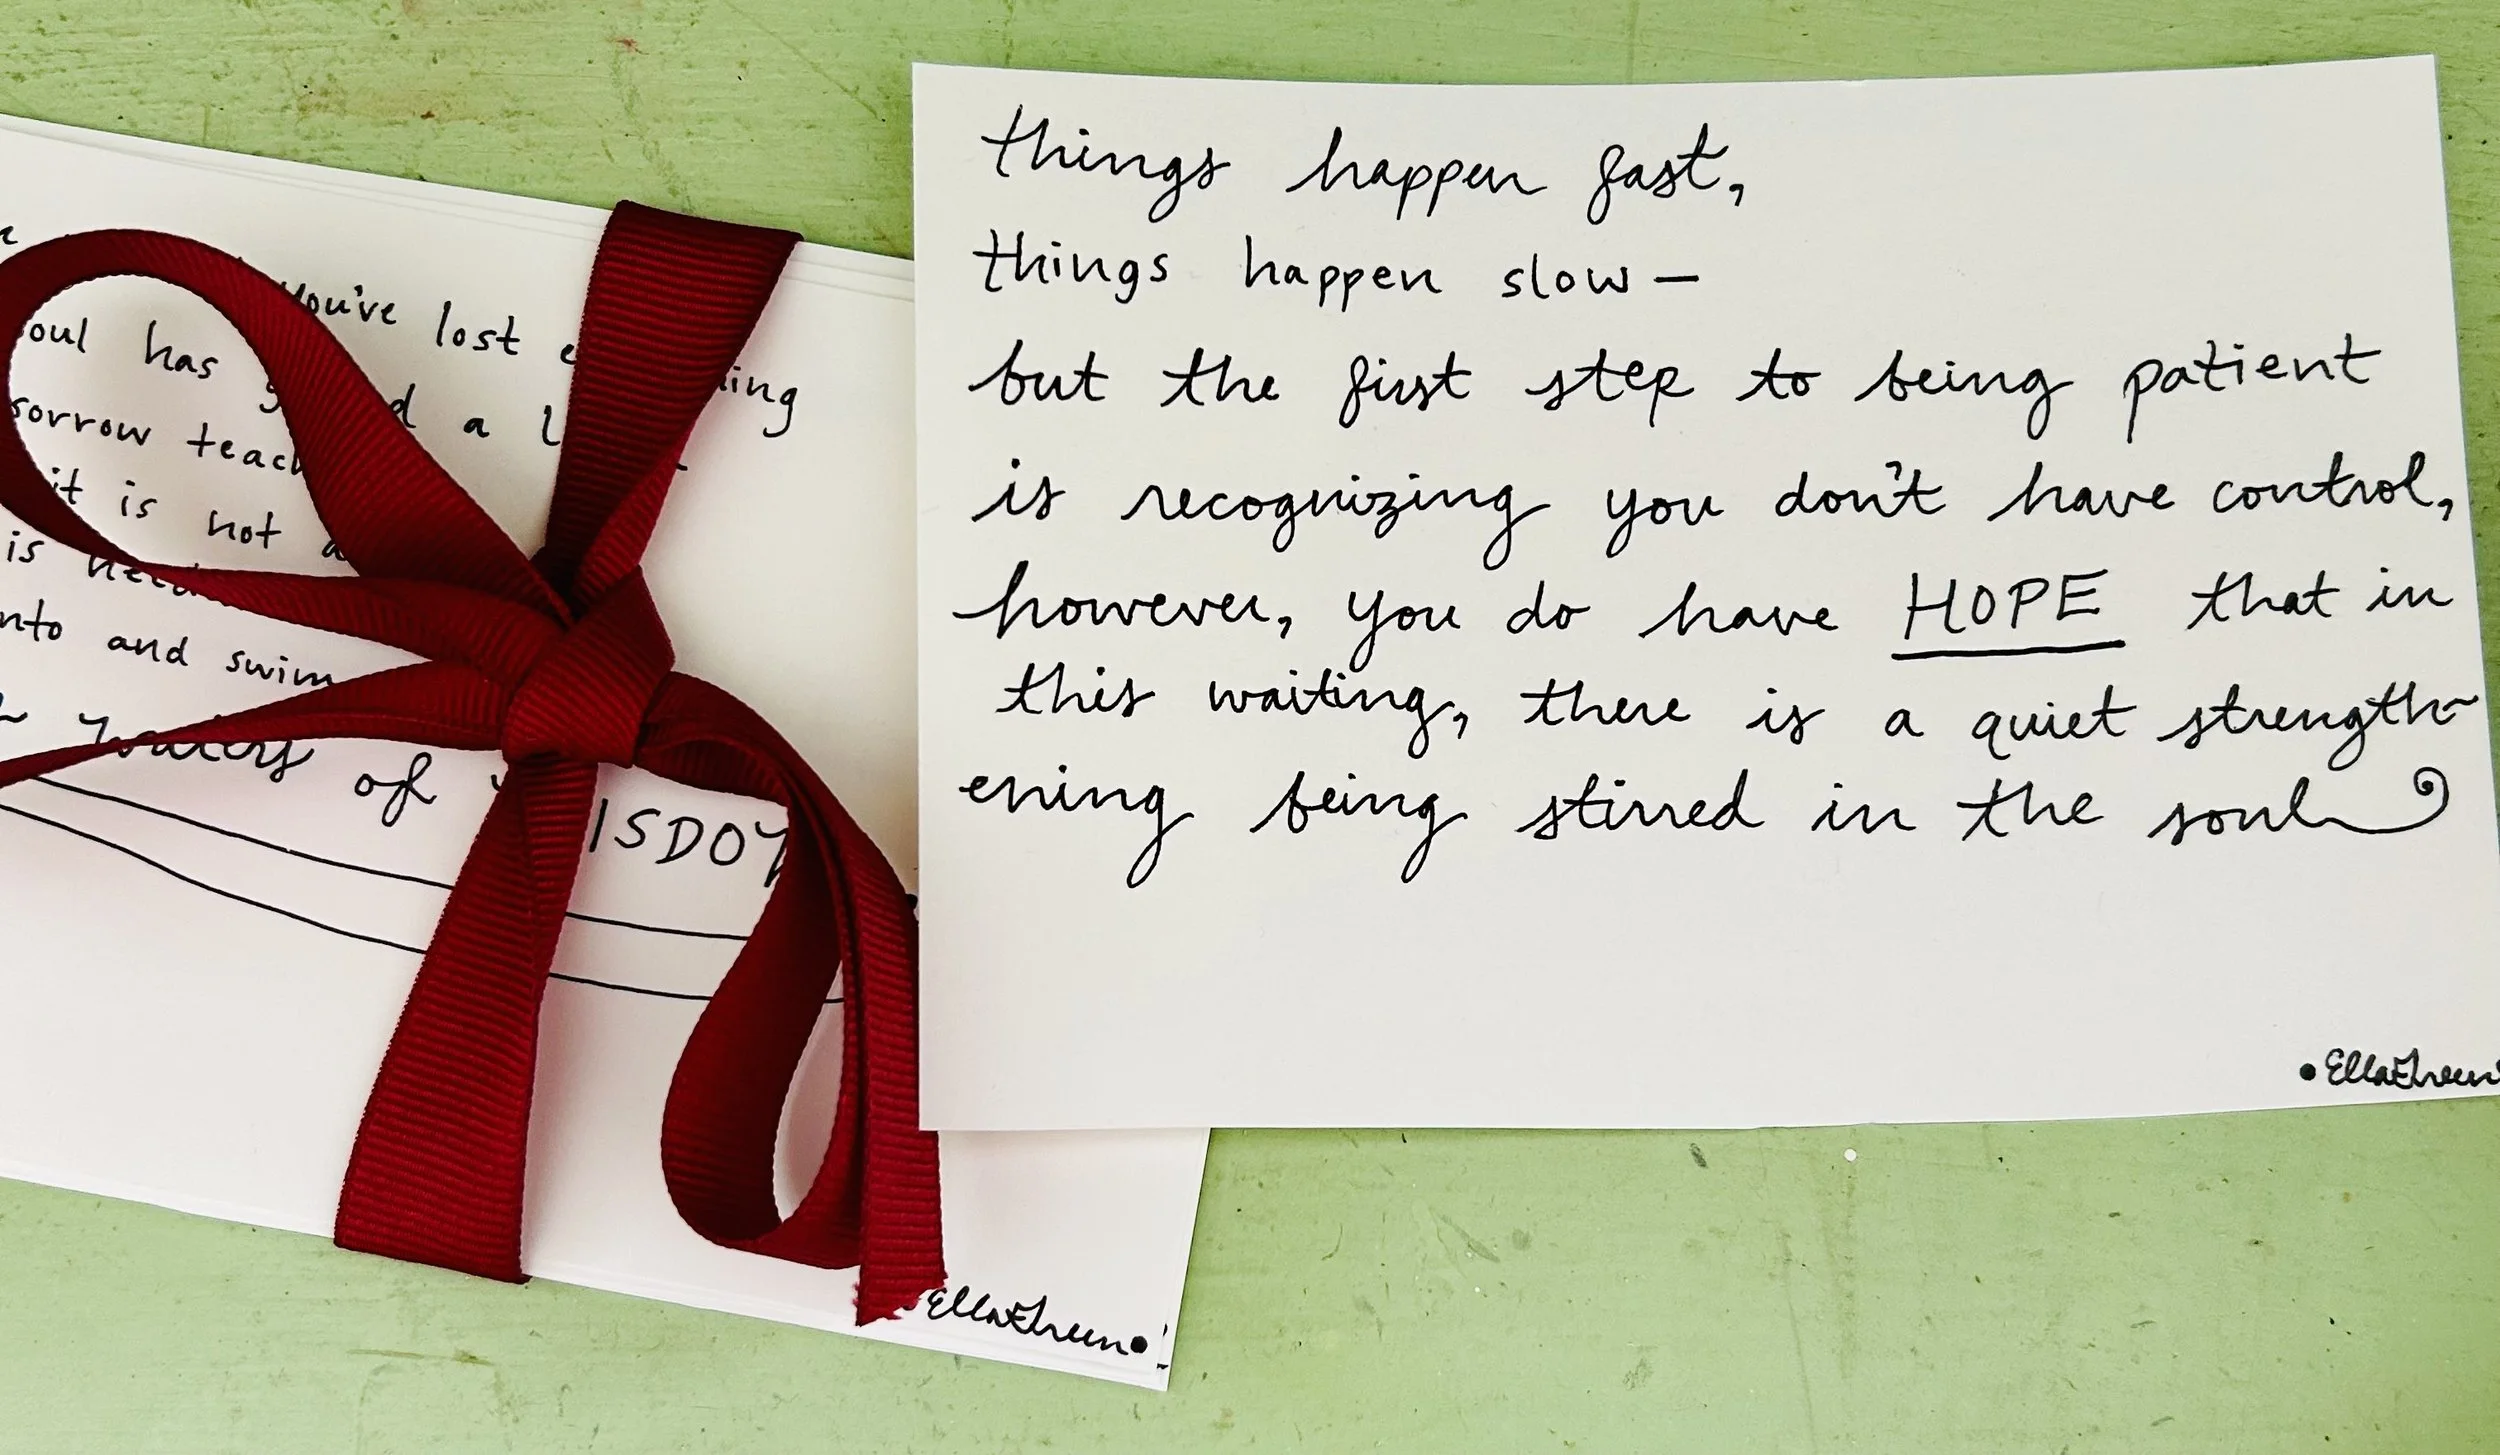 you've lost
oul has a
sorrow
it is not
is
and swim
waters of
things happen fast,
things happen slow—
but the first step to being patient
is recognizing you don't have control,
however, you do have HOPE that in
this waiting, there is a quiet strength-
ening being stirred in the soul